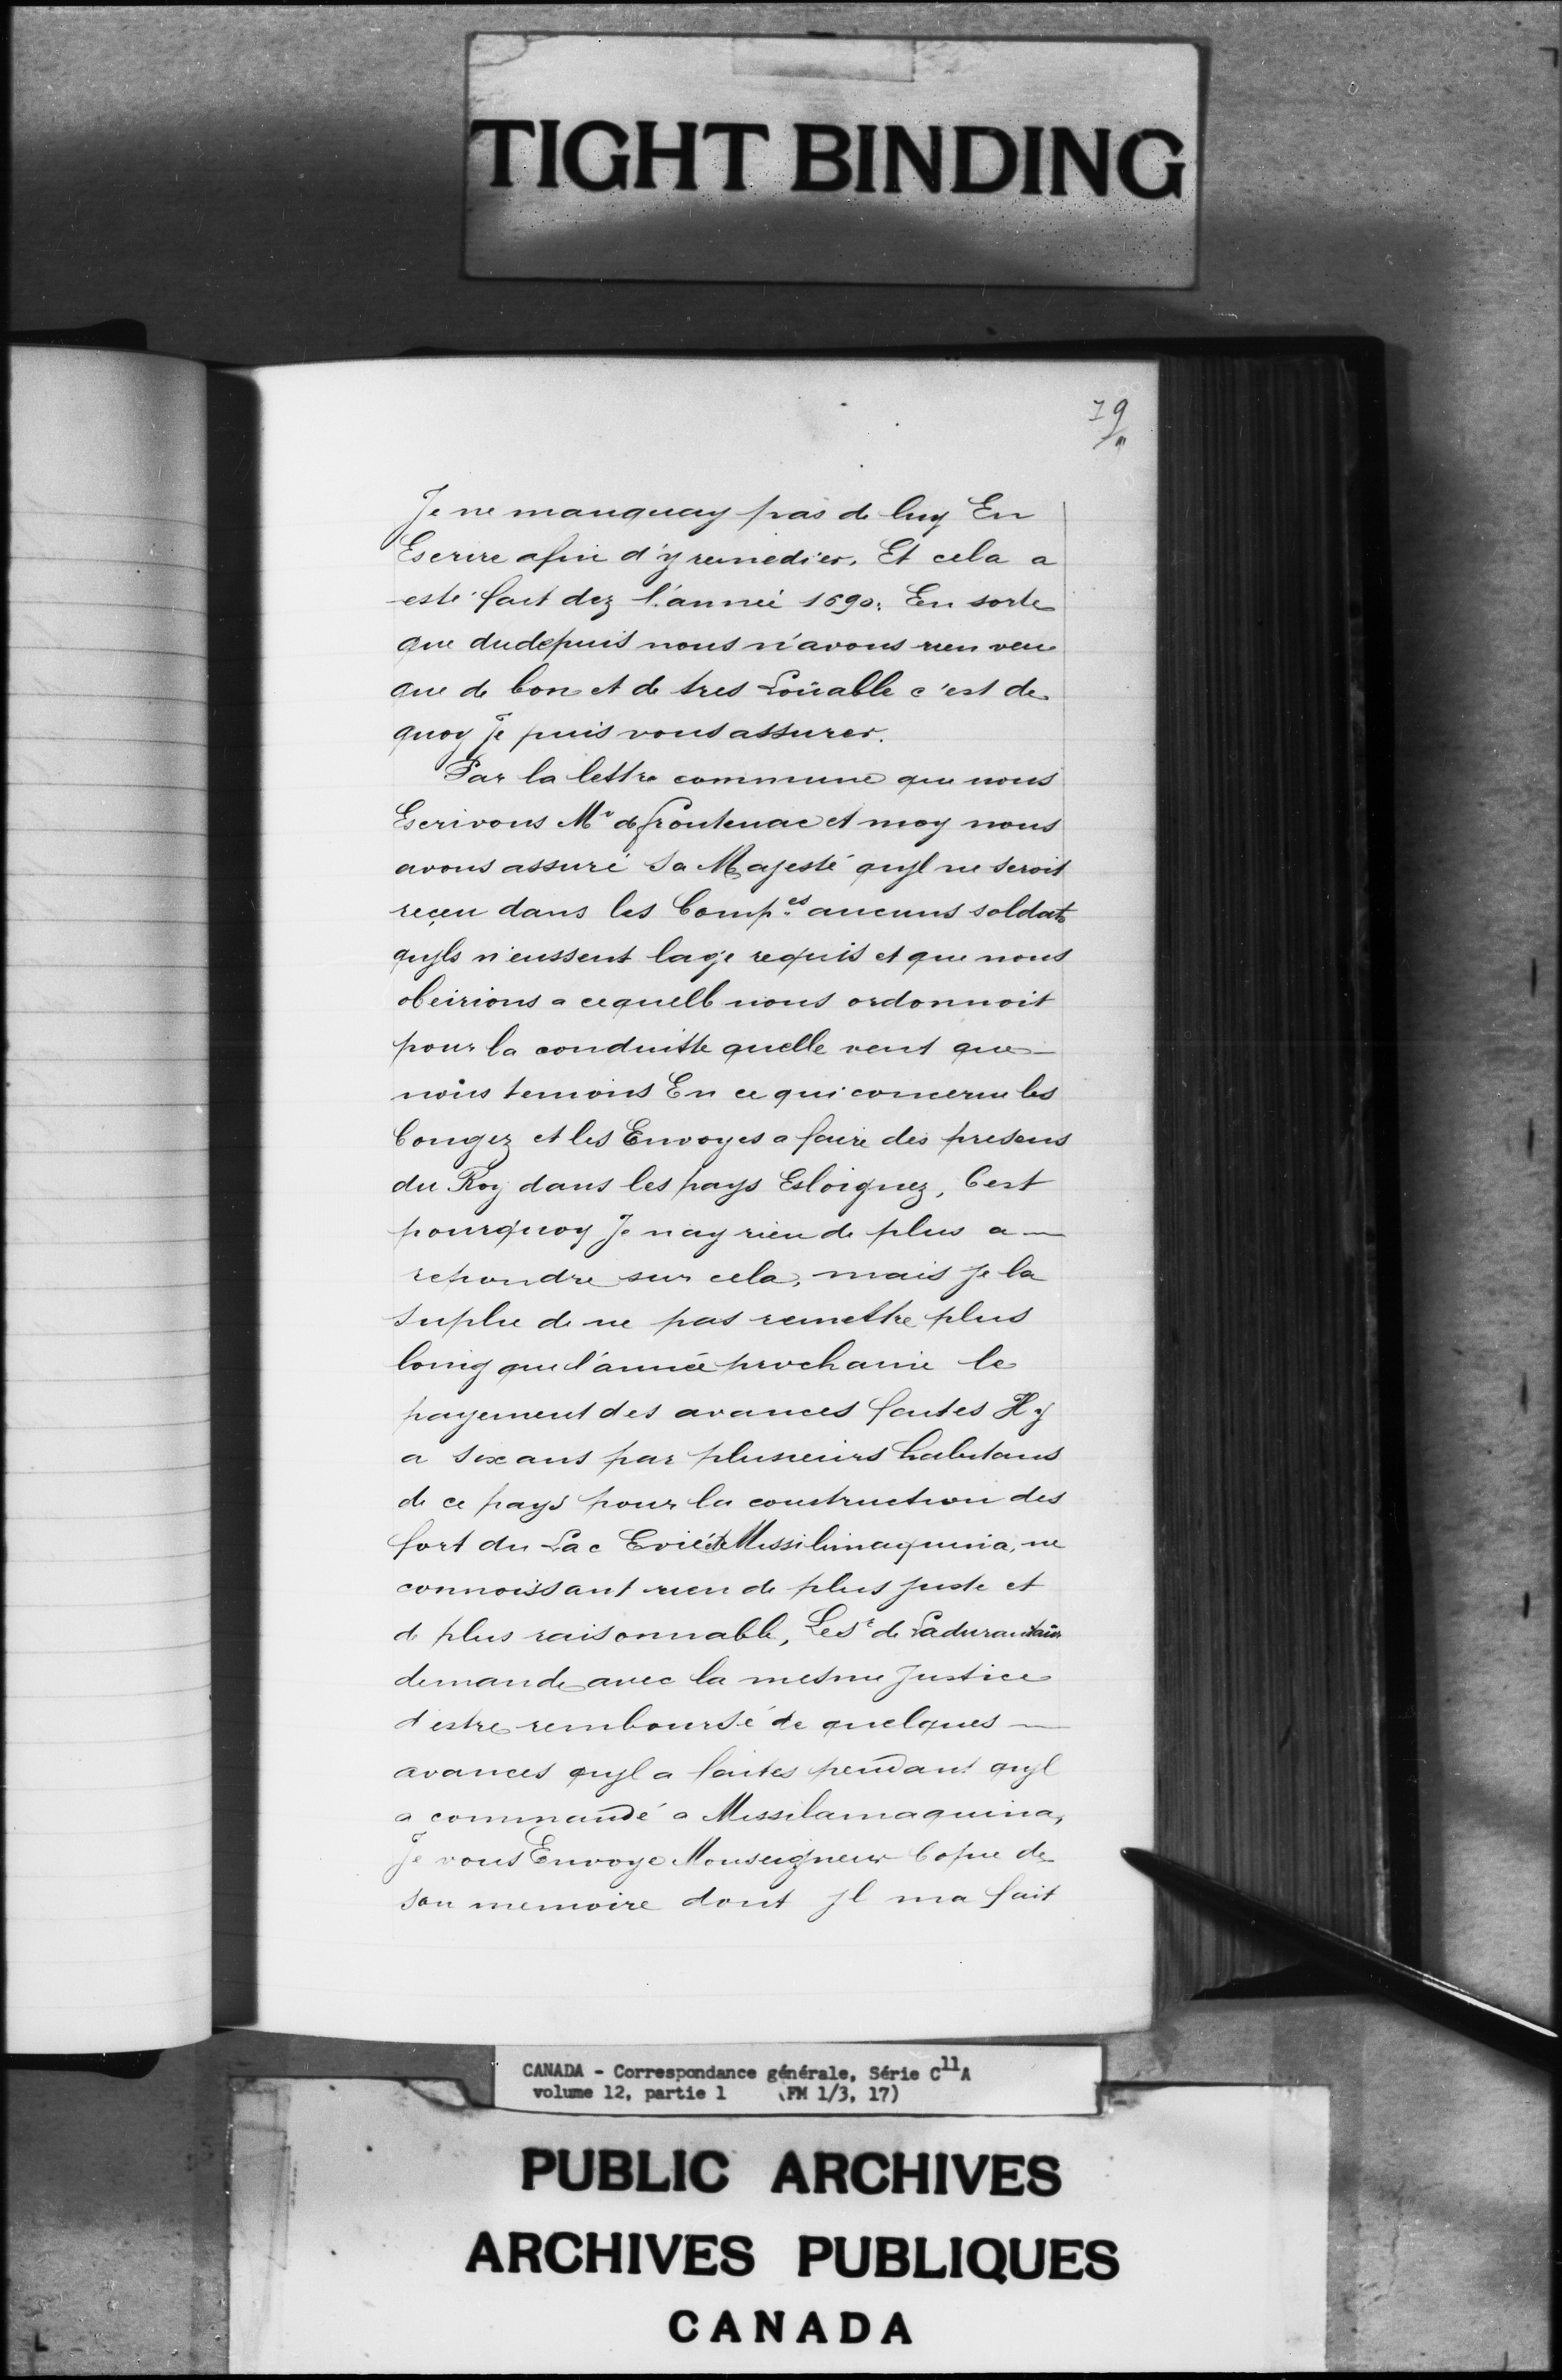 TIGHT BINDING
79
Je ne manquay pas de luy En
Escrire afin d'y remedier. Et cela a
esté fait dez l'année 1690. En sorte
que dudepuis nous n'avons rien veu
que de bon et de tres Loüable c'est de
quoy Je puis vous assurer.
Par la lettre commune que nous
Escrivons Mr de frontenac et moy nous
avons assuré Sa Majesté qujl ne seroit
reçeu dans les Comp.es aucuns soldats
qujls n'eussent lage requis et que nous
obeirions a cequelle nous ordonnoit
pour la conduitte quelle veut que —
nous tenions En ce qui concerne les
Congez et les Envoyes a faire des presens
du Roy dans les pays Esloignez, C'est
pourquoy Je nay rien de plus a —
repondre sur cela, mais je la
suplie de ne pas remettre plus
loing que l'année prochaine le
payement des avances faites Il y
a six ans par plusieurs habitans
de ce pays pour la construction des
fort du Lac Erié et Missilimaquina, ne
connoissant rien de plus juste et
de plus raisonnable, Le Sr de Ladurantaïe
demande avec la mesme Justice
d'estre remboursé de quelques —
avances qujl a faites pendant qujl
a commandé a Missilamaquina,
Je vous Envoye Monseigneur Copie de
son memoire dont jl ma fait
CANADA - Correspondance générale, Série C11A
volume 12, partie 1 (FM 1/3, 17)
PUBLIC ARCHIVES
ARCHIVES PUBLIQUES
CANADA